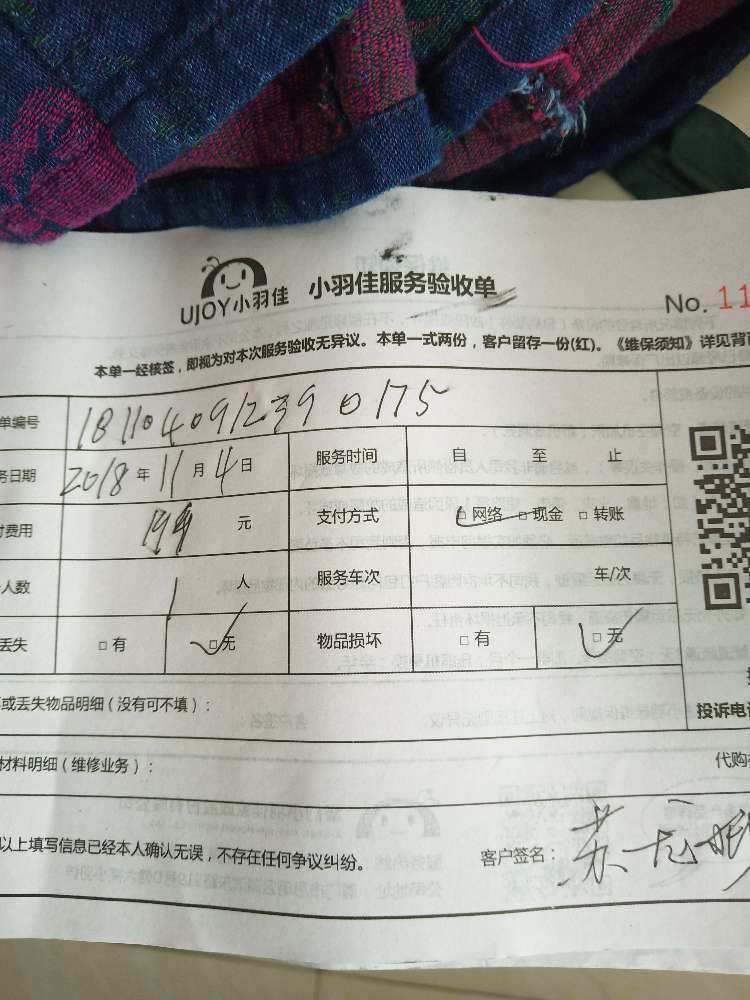 UJOY小羽佳 小羽佳服务验收单
No. 11
本单一经核签，即视为对本次服务验收无异议。本单一式两份，客户留存一份(红)。《维保须知》详见背面
单编号 1811040912390175
务日期 2018 年 11 月 4 日 服务时间 自 至 止
付费用 199 元 支付方式 □网络 □现金 □转账
人数 1 人 服务车次 车/次
丢失 □有 □无 物品损坏 □有 □无
或丢失物品明细（没有可不填）：
投诉电
材料明细（维修业务）：
代购
以上填写信息已经本人确认无误，不存在任何争议纠纷。 客户签名：